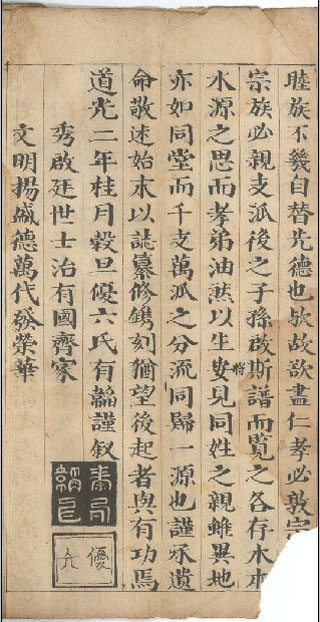 睦族不幾自替先德也欤故欲盡仁孝必敦宗
宗族必親支派後之子孫啟斯譜而覧之各存木本
水源之思而孝弟油然以生安將見同姓之親雖異地
亦如同堂而千支萬派之分流同歸一源也謹承遺
命敬述始末以誌纂修鐫刻猶望後起者與有功焉
道光二年桂月穀旦優六氏有韜謹叙
秀啟廷世士治有國齊家
文明揚盛德萬代發榮華
優六